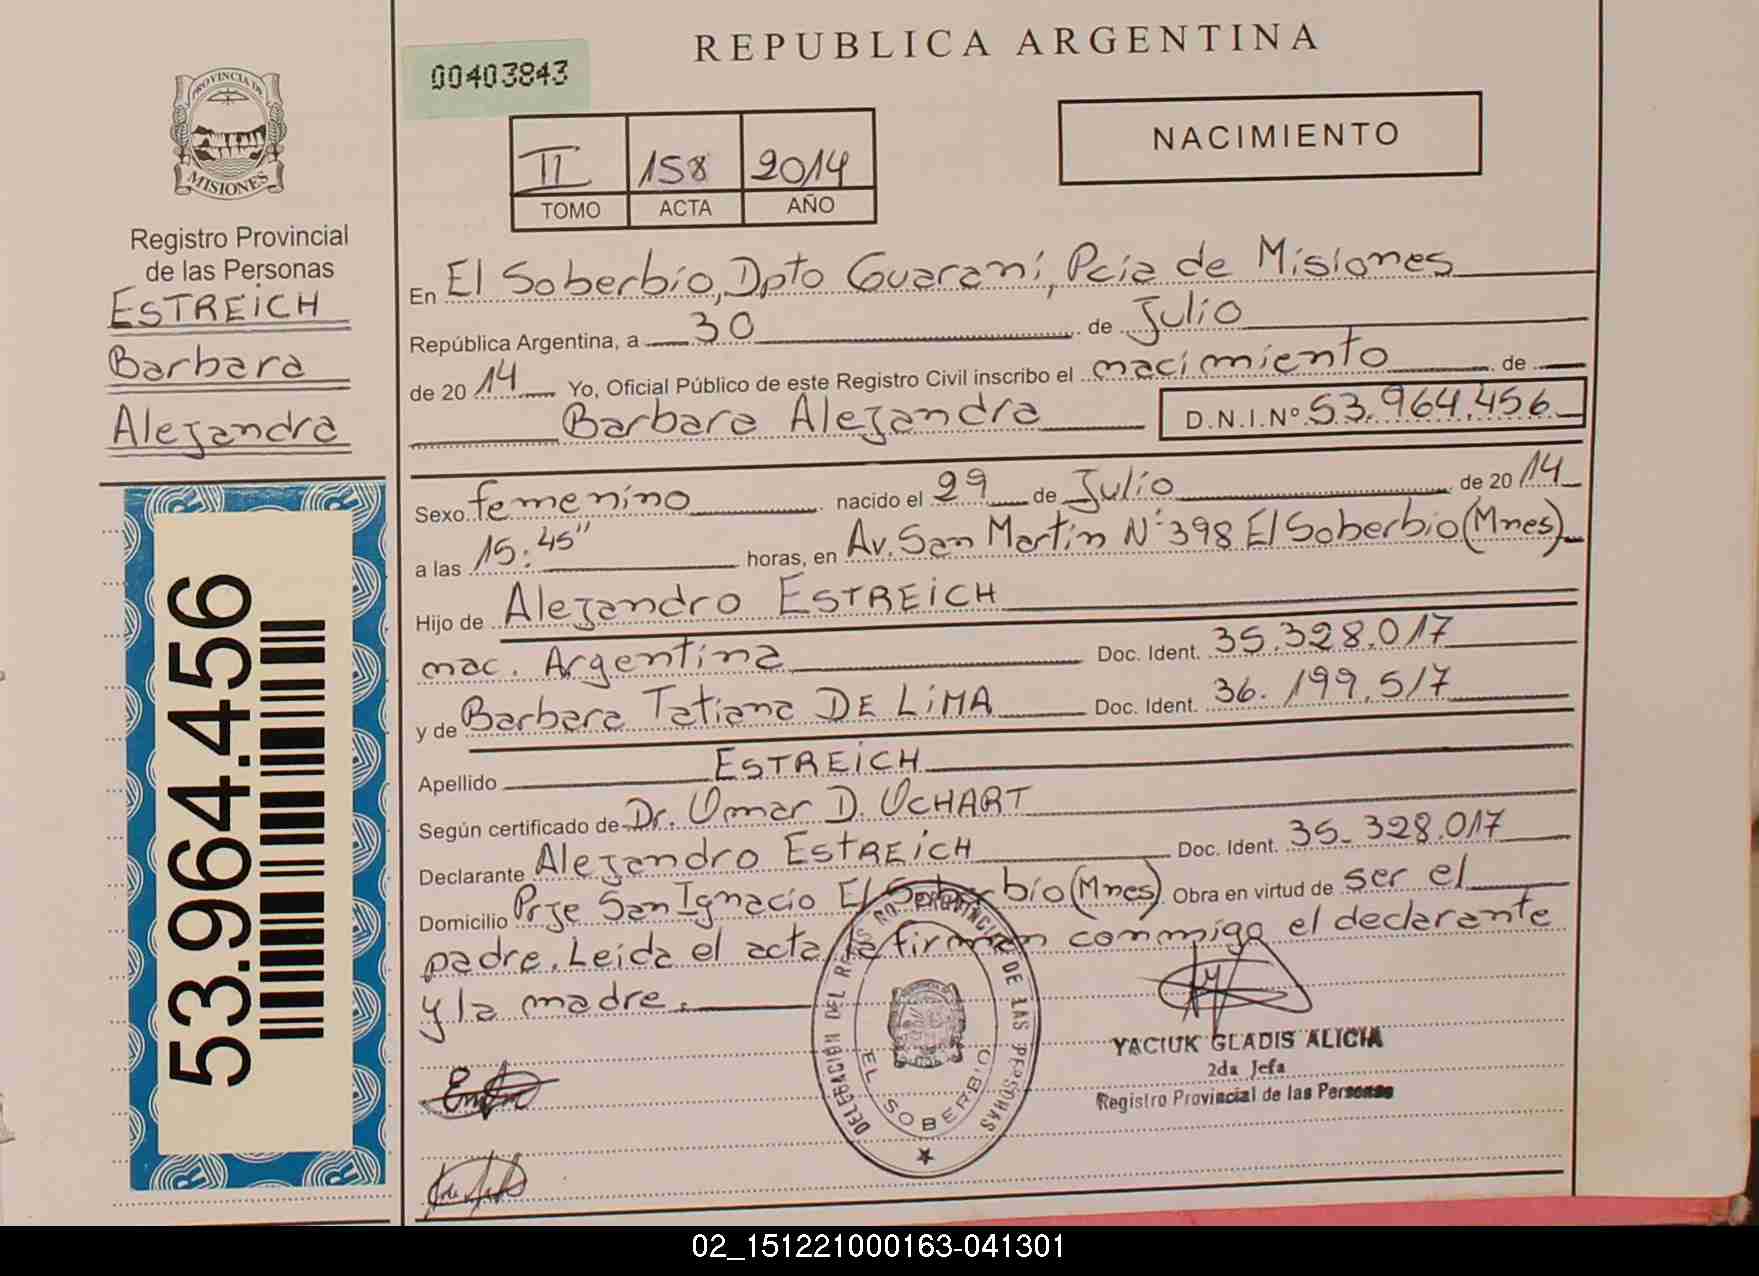 REPUBLICA ARGENTINA
00403843
NACIMIENTO
II 158 2014
TOMO ACTA AÑO
PROVINCIA DE
MISIONES
Registro Provincial
de las Personas
ESTREICH
Barbara
Alejandra
53.964.456
En El Soberbio, Dpto Guaraní, Pcia de Misiones
República Argentina, a 30 de Julio
de 2014 Yo, Oficial Público de este Registro Civil inscribo el nacimiento de
Barbara Alejandra D.N.I.Nº 53.964.456
Sexo femenino nacido el 29 de Julio de 2014
a las 15:45" horas, en Av. San Martin Nº 398 El Soberbio (Mnes)
Hijo de Alejandro ESTREICH
nac. Argentina Doc. Ident. 35.328.017
y de Barbara Tatiana DE LIMA Doc. Ident. 36.199.517
Apellido ESTREICH
Según certificado de Dr. Omar D. UCHART
Declarante Alejandro ESTREICH Doc. Ident. 35.328.017
Domicilio Prje San Ignacio El Soberbio (Mnes) Obra en virtud de ser el
padre. Leída el acta la firman conmigo el declarante
y la madre.
DELEGACION DEL REGISTRO PROVINCIAL DE LAS PERSONAS
EL SOBERBIO
YACIUK GLADIS ALICIA
2da Jefa
Registro Provincial de las Personas
02_151221000163-041301